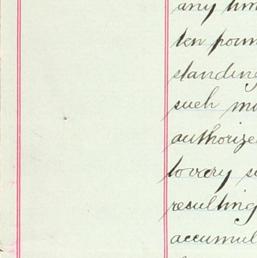 any tim
ten poun
standing
such mo
authorize
to every s
resulting
accumul